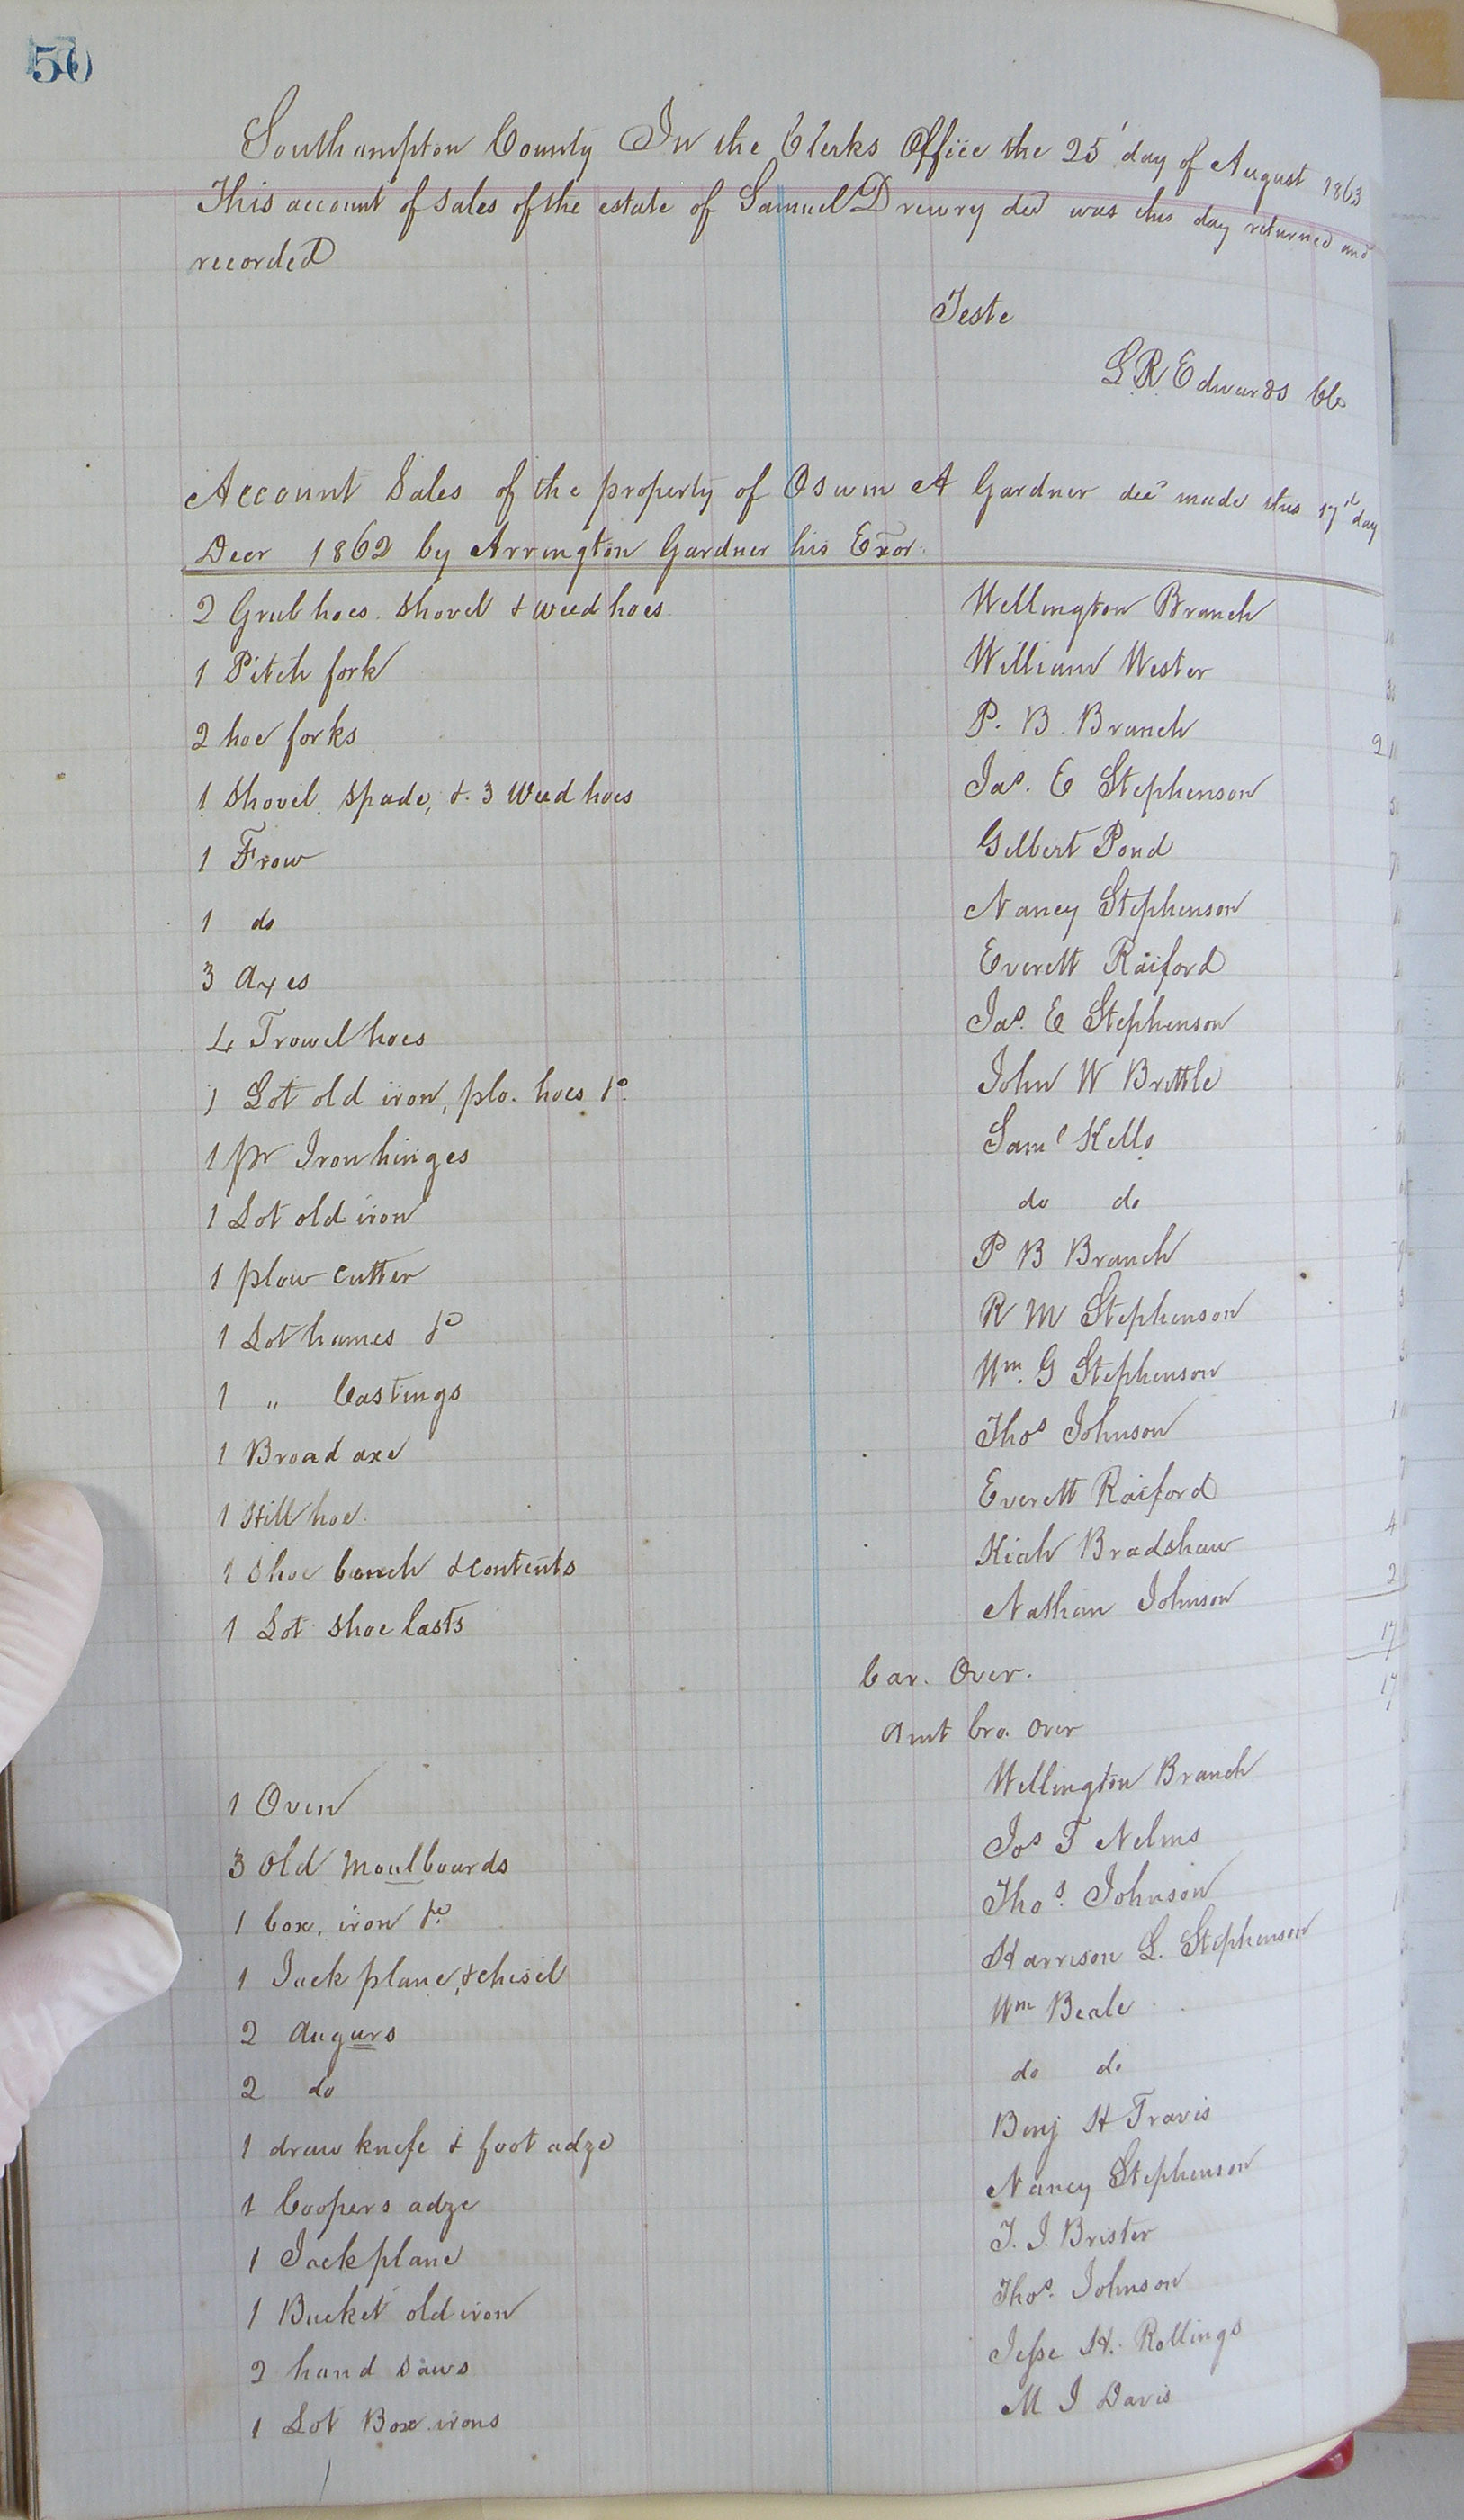 50
Southampton County In the Clerks Office the 25 day of August 1863
This account of sales of the estate of Samuel Drewry decd was this day returned and
recorded
Teste
L R Edwards Clk
Account Sales of the property of Oswin A Gardner decd made this 17th day
Decr 1862 by Arrington Gardner his Exor.
2 Grub hoes. Shovel & weed hoes Wellington Branch
1 Pitch fork William Wester
2 hoe forks P. B. Branch 2
1 Shovel. Spade, &. 3 Weed hoes Jas. E Stephenson
1 Frow Gilbert Pond
1 do Nancy Stephenson
3 Axes Everett Raiford
4 Trowel hoes Jas. E Stephenson
1 Lot old iron, plo. hoes &c. John W Brittle
1 pr Iron hinges Saml Kello
1 Lot old iron do do
1 plow cutter P B Branch
1 Lot hames &c R M Stephenson
1 " Castings Wm. G Stephenson
1 Broad axe Thos Johnson
1 Hill hoe. Everett Raiford
1 Shoe bench & contents Kiah Bradshaw 4
1 Lot shoe lasts Nathan Johnson 2
17
Car. Over. 17
Amt bro. over
1 Oven Wellington Branch
3 Old Moulboards Jos T Nelms
1 box, iron &c Thos. Johnson
1 Jack plane, & chisel Harrison L. Stephenson
2 Augurs Wm Beale
2 do do do
1 draw knife & foot adze Benj H Travis
1 Coopers adze Nancy Stephenson
1 Jack plane T. J. Brister
1 Bucket old iron Thos. Johnson
2 hand saws Jesse H. Rollings
1 Lot Box irons M J Davis